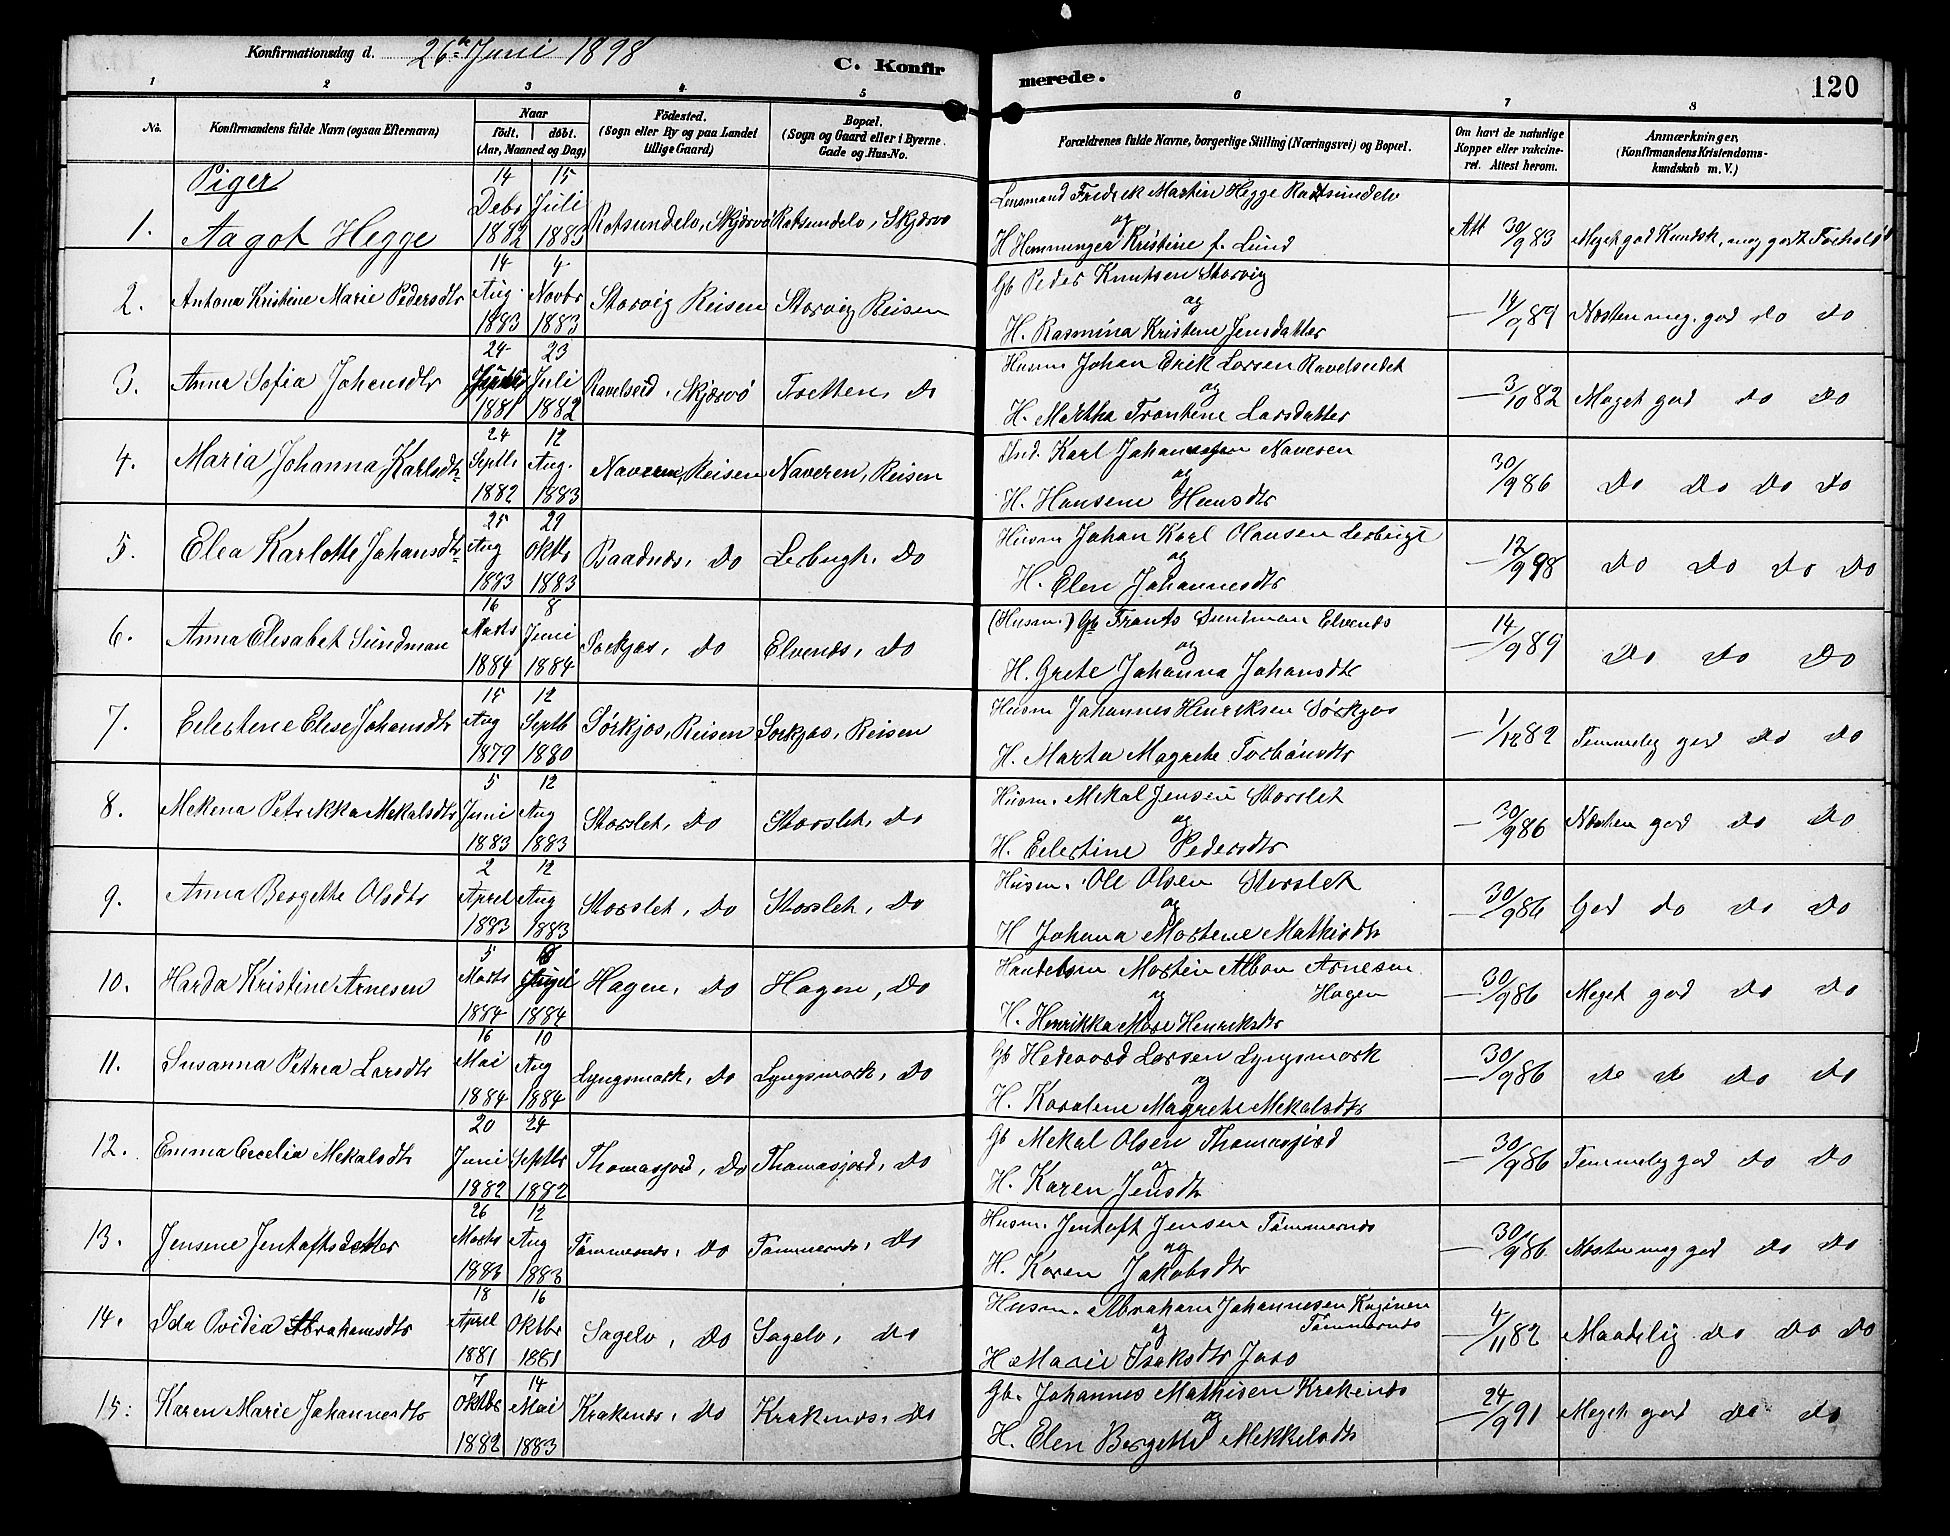 Konfirmationsdag d. 26de Juni 1898
C. Konfirmerede.
120
1 2 3 4 5 6 7 8
No. Konfirmandens fulde Navn (ogsaa Efternavn) Naar født. døbt. (Aar, Maaned og Dag) Födested. (Sogn eller By og paa Landet tillige Gaard) Bopæl. (Sogn og Gaard eller i Byerne Gade og Hus-No. Forældrenes fulde Navne, borgerlige Stilling (Næringsvei) og Bopæl. Om havt de naturlige Kopper eller vakcineret. Attest herom. Anmærkninger, (Konfirmandens Kristendomskundskab m. V.)
Piger
1. Aagot Hegge 14 Debr 1882 15 Juli 1883 Rotsundelv, Skjærvø Rotsundelv, Skjærvø Lensmand Fredrik Martin Hegge Rodtsundelv
og
H Hemminger Kristine f. Lund Att 30/9 83 Meget god Kundsk, meg godt Forhold
2. Antona Kristine Marie Pedersdtr 14 Aug. 1883 4 Novbr 1883 Storvig Reisen Storvig Reisen Gb Peder Knutsen Storvig
og
H. Rasmina Kristine Jensdatter — 14/9 89 Næsten meg. god do do
3. Anna Sofia Johansdtr 24 1881 23 Juli 1882 Ravelseid, Skjærvø Fretten, do Husm Johan Erik Larsen Ravelseidet
og
H. Martha Frantene Larsdatter — 3/10 82 Meget god do do
4. Maria Johanna Karlsdtr 24 Septbr 1882 12 Aug. 1883 Naveren, Reisen Naveren, Reisen Ind. Karl Johannessen Naveren
og
H. Hansene Hansdtr 30/9 86 do do do do
5. Elea Karlotte Johansdtr 25 Aug 1883 29 Oktbr 1883 Baadnæs, do Leibugt, do Husm Johan Karl Olausen Leibugt
og
H. Elen Johannesdtr — 12/9 98 do do do do
6. Anna Elisabet Sundman 16 Marts 1884 8 Juni 1884 Sørkjos, do Elvenes, do (Husm.) Gb Frants Sundman Elvenes
og
H. Grete Johanna Johansdtr — 14/9 89 do do do
7. Eelestene Elese Johansdtr 15 Aug 1879 12 Septb 1880 Sørkjos, Reisen Sørkjos, Reisen Husm Johannes Henriksen Sørkjos
H. Marta Magrete Torbønsdtr — 1/12 82 Temmelig god do do
8. Mekena Petrikka Mekalsdtr 5 Juni 1883 12 Aug 1883 Storslet, do Storslet, do Husm. Mekal Jensen Storslet
og
H. Eelestine Pedersdtr — 30/9 86 Næsten god do do
9. Anna Bergette Olsdtr 2 April 1883 12 Aug 1883 Storslet, do Storslet, do Husm. Ole Olsen Storslet
og
H Johana Mortene Mathisdtr — 30/9 86 God do do do
10. Harda Kristine Arnesen 5 Marts 1884 1884 Hagen, do Hagen, do Handelsm Morten Albon Arnesen
og Hagen
H. Henrikka Mare Henriksdtr — 30/9 86 Meget god do do
11. Susanna Petrea Larsdtr 16 Mai 1884 10 Aug 1884 Lyngsmark, do Lyngsmark, do Gb Hedevard Larsen Lyngsmark
og
H. Karolene Magrete Mekalsdtr — 30/9 86 do do do do
12. Emma Cecelia Mekalsdtr 20 Juni 1882 24 Septbr 1882 Thomasjord, do Thomasjord, do Gb Mekal Olsen Thomasjord
og
H. Karen Jensdtr — 30/9 86 Temmelig god do do
13. Jensine Jentoftsdatter 26 Marts 1883 12 Aug 1883 Tømmernes, do Tømmernes, do Husm. Jentoft Jensen Tømmernes
og
H. Karen Jakobsdtr — 30/9 86 Næsten meg god do do
14. Ida Ovedia Abrahamsdtr 18 April 1881 16 Oktbr 1881 Sagelv, do Sagelv, do Husm. Abraham Johannesen Kaginen
og Tømmernes
H. Marie Isaksdtr Juso — 4/11 82 Maadelig do do do
15. Karen Marie Johannesdtr 7 Oktbr 1882 14 Mai 1883 Krakenes, do Krakenes, do Gb. Johannes Mathisen Krakenes
og
H. Elen Bergette Mekkelsdtr — 24/9 91 Meget god do do